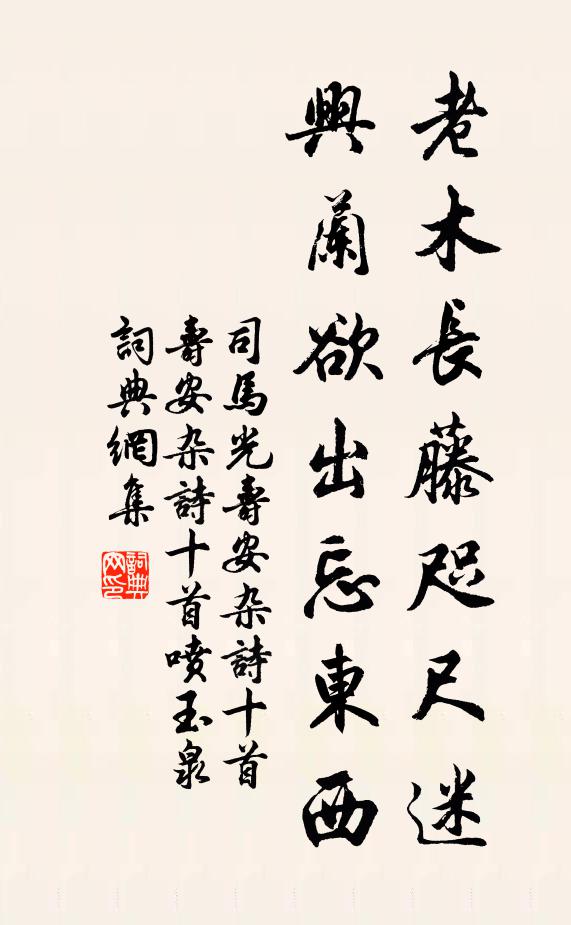 老木長藤咫尺迷
興蘭欲出忘東西
司馬光壽安杂詩十首
壽安杂詩十首噴玉泉
詞典網集
詞典网印